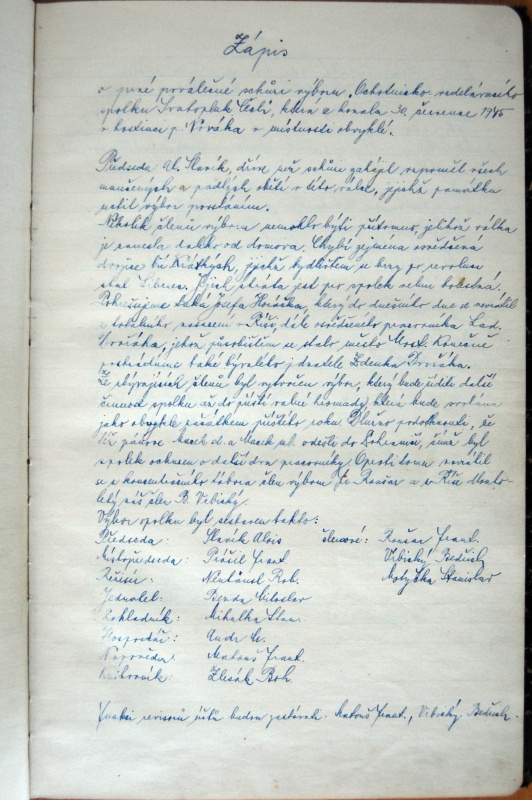 Zápis
o prvé poválečné schůzi výboru "Ochotnicko vzdělávacího
spolku Svatopluk Čech", která se konala 30. července 1945
v hostinci p. Nováka v místnosti obvyklé.
Předseda Al. Slavík, dříve než schůzi zahájil vzpomněl všech
mučených a padlých obětí v této válce, jejichž památku
uctil výbor povstáním.
Několik členů výboru nemohlo býti přítomno, jelikož válka
je zanesla daleko od domova. Chybí zejména osvědčená
dvojice bří Krátkých, jejichž bydlištěm se brzy po revoluci
stal Liberec. Jejich ztráta jest pro spolek velmi bolestná.
Postrádáme také Josefa Horáčka, který do dnešního dne se nevrátil
z totálního nasazení v Říši, dále osvědčeného pracovníka Lad.
Nováka, jehož působištěm se stalo město Most. Konečně
postrádáme také bývalého jednatele Zdenka Dvořáka.
Ze zbývajících členů byl vytvořen výbor, který bude říditi další
činnost spolku až do příští valné hromady, která bude svolána
jako obvykle začátkem příštího roku. Dlužno podotknouti, že
též pánové Macek st. a Macek ml. odešli do Lohenic, čímž byl
spolek ochuzen o další dva pracovníky. Oproti tomu vrátil
se z koncentračního tábora člen výboru Fr. Roušar a z Říše
náš člen B. Vrbický.
Výbor spolku byl sestaven takto:
Předseda: Slavík Alois členové: Roušar Frant.
Místopředseda: Prášil Frant Vrbický Bedřich
Režisér: Rob. Motyčka Stanislav
Jednatel: Benda Miloslav
Pokladník: Mihalka Stan.
Hospodář:
Nápověda: Matouš Frant.
Knihovník: Boh.
Funkci revisorů účtů budou zastávati: Matouš Frant., Vrbický Bedřich.